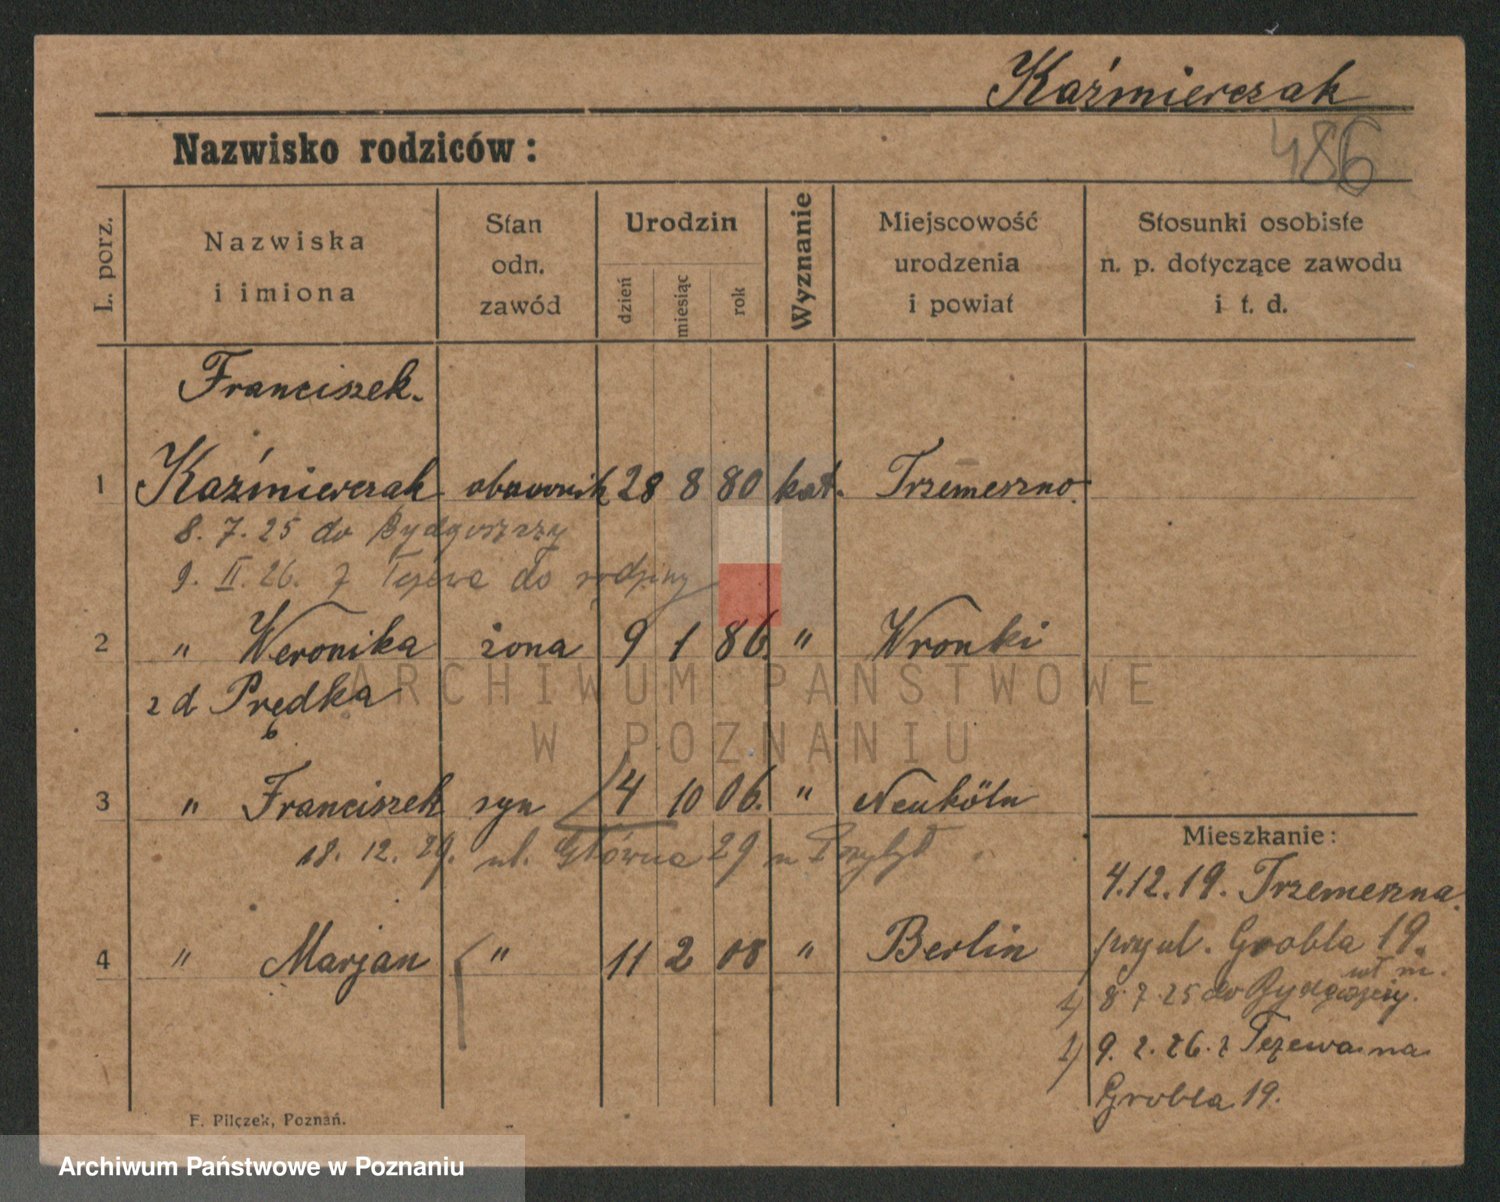 Kaźmierczak
486
Nazwisko rodziców:
L. porz.
Nazwiska i imiona
Stan odn. zawód
Urodzin
dzień
miesiąc
rok
Wyznanie
Miejscowość urodzenia i powiat
Stosunki osobiste n. p. dotyczące zawodu i t. d.
Franciszek.
1 Kaźmierczak 28 8 80 kat. Trzemeszno
8. 7. 25 do Bydgoszczy
9. II. 26. z do rodziny
2 " Weronika żona 9 1 86. " Wronki
z d Prędka
3 " Franciszek syn 4 10 06. " Neuköln
18. 12. 29. ul. Główna 29
4 " Marjan " 11 2 08 " Berlin
Mieszkanie:
4.12.19. Trzemeszna
ul. Grobla 19.
1) 8.7.25 do Bydgoszczy.
1) 9. 2. 26. z na
Grobla 19.
F. Pilczek, Poznań.
ARCHIWUM PAŃSTWOWE
W POZNANIU
Archiwum Państwowe w Poznaniu